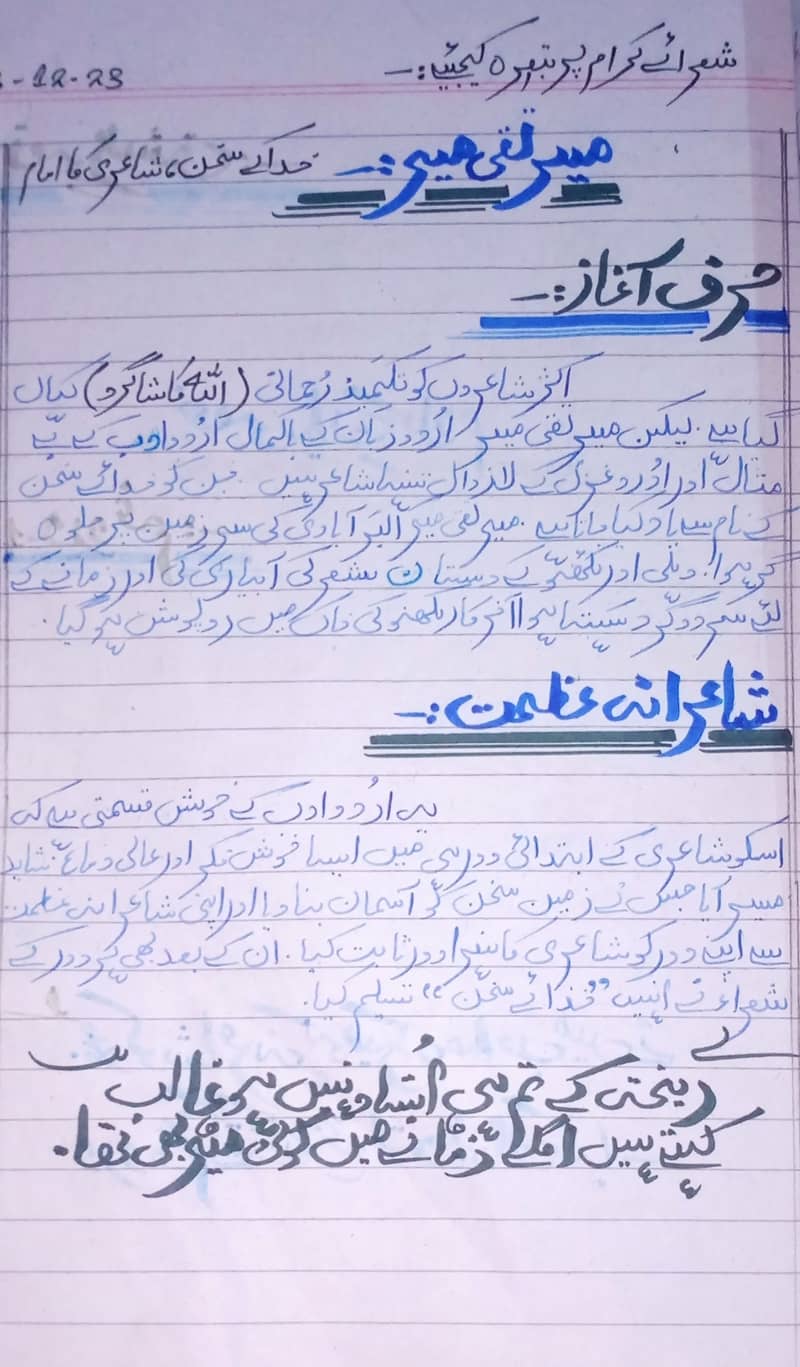 شعرائے کرام پر تبصرہ کیجئے:۔
-12-23
میر تقی میر:۔ خدائے سخن، شاعری کا امام
حرف آغاز:۔
اکثر شاعروں کو تلمیذ رحمانی (اللہ کا شاگرد) کہاں
گیا ہے۔ لیکن میر تقی میر اردو زبان کے باکمال اردو ادب کے بے
مثال اور اردو غزل کے لازوال شاعر ہیں۔ جن کو خدائے سخن
کے نام سے یاد کیا جاتا ہے۔ میر تقی میر اکبر آبادی کی سرزمین پر جلوہ
گر ہوا۔ دہلی اور لکھنؤ کے دبستان شعر کی آبیاری کی اور زمانے کے
لئے سرد و گرد سہتا ہوا آخر کار لکھنو کی خاک میں روپوش ہو گیا۔
شاعرانہ عظمت:۔
یہ اردو ادب کے خوش قسمتی ہے کہ
اسکو شاعری کے ابتدائی دور ہی میں ایسا خوش فکر اور عالی دماغ شاید
میسر آیا جس نے زمین سخن کو آسمان بنا دیا اور اپنی شاعرانہ عظمت
سے اپنے دور کو شاعری کا دور ثابت کیا۔ ان کے بعد بھی ہر دور کے
شعراء نے انہیں "خدائے سخن" تسلیم کیا۔
ریختہ کے تم ہی اُستاد نہیں ہو غالب
کہتے ہیں اگلے زمانے میں کوئی میر بھی تھا۔